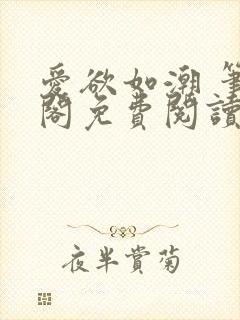 愛欲如潮 筆
閣免費閱讀
夜半賞菊